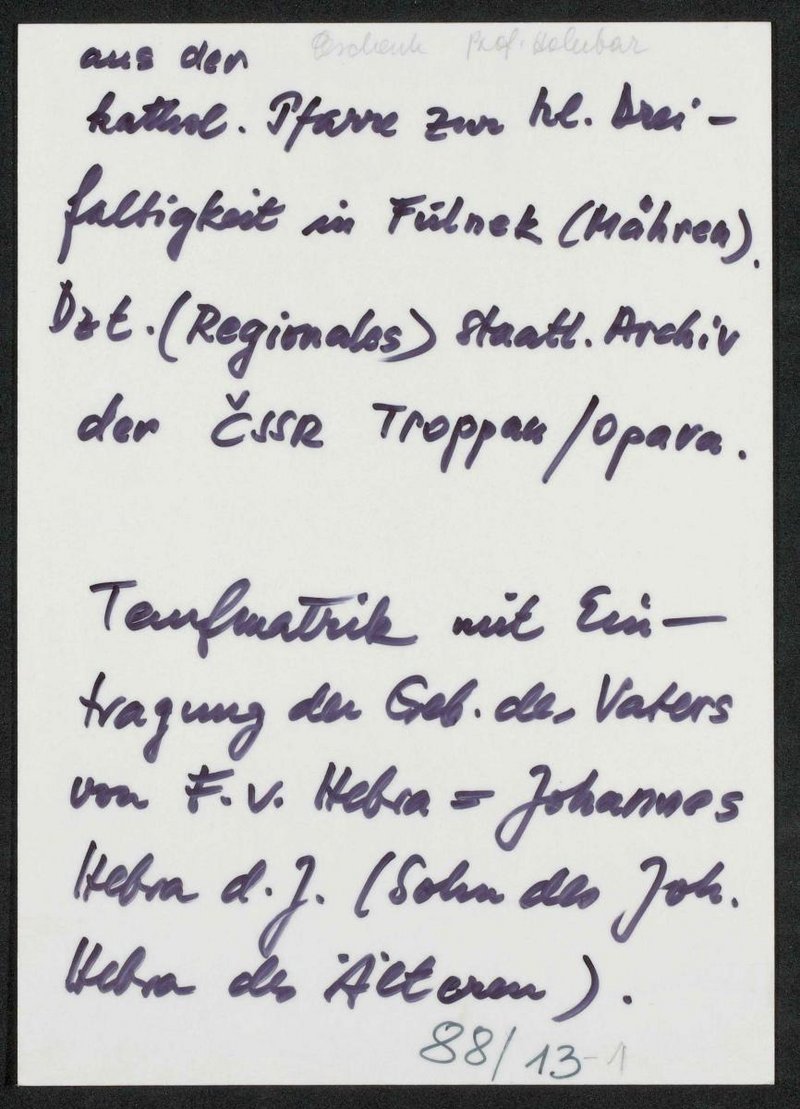 Geschenk Prof. Holubar
aus der
kathol. Pfarre zur hl. Drei-
faltigkeit in Fülnek (Mähren).
Dzt. (Regionales) Staatl. Archiv
der ČSSR Troppau/Opava.
Taufmatrik mit Ein-
tragung der Geb. des Vaters
von F. v. Hebra = Johannes
Hebra d. J. (Sohn des Joh.
Hebra des Älteren).
88/13-1